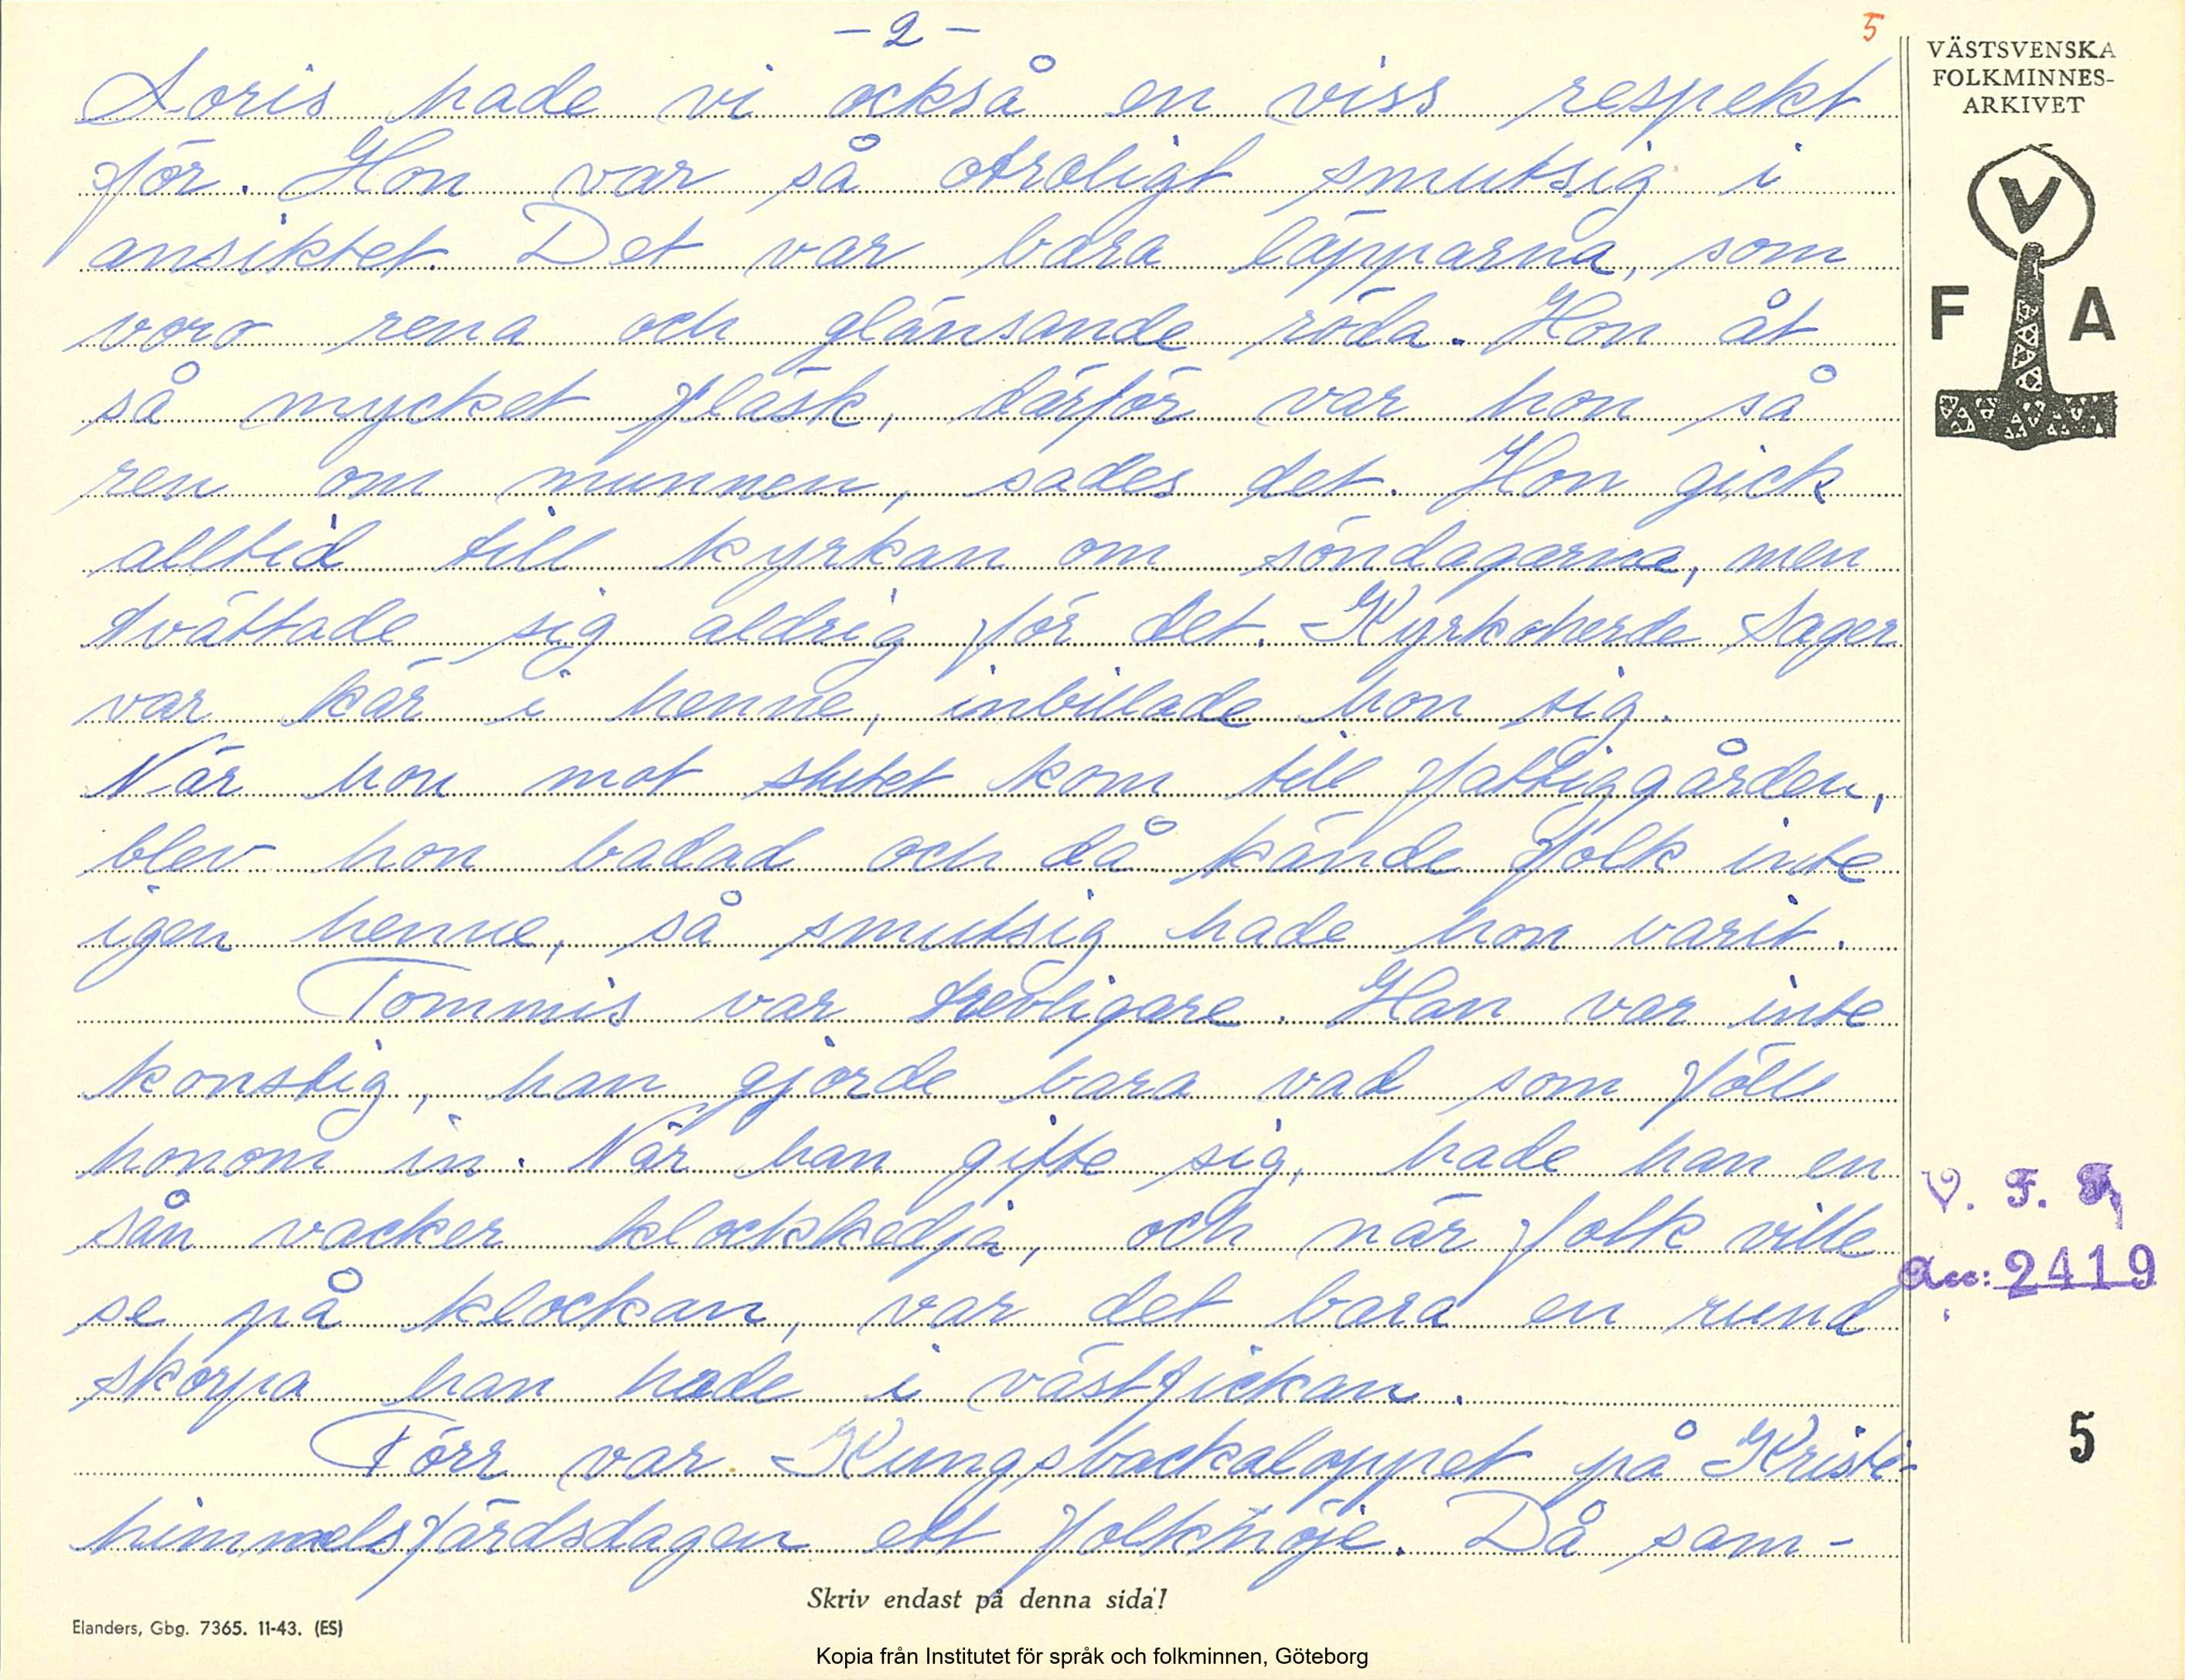 - 2 -
5
Loris hade vi också en viss respekt
för. Hon var så otroligt smutsig i
ansiktet. Det var bara läpparna, som
voro rena och glänsande röda. Hon åt
så mycket fläsk, därför var hon så
ren om munnen, sades det. Hon gick
alltid till kyrkan om söndagarna, men
tvättade sig aldrig för det. Kyrkoherde Sager
var kär i henne, inbillade hon sig.
När hon mot slutet kom till fattiggården,
blev hon badad och då kände folk inte
igen henne, så smutsig hade hon varit.
Tommis var trevligare. Han var inte
konstig, han gjorde bara vad som föll
honom in. När han gifte sig, hade han en
sån vacker klockkedja, och när folk ville
se på klockan, var det bara en rund
skorpa han hade i västfickan.
Förr var Kungsbackaloppet på Kristi-
himmelsfärdsdagen ett folknöje. Då sam-
Skriv endast på denna sida!
Elanders, Gbg. 7365. 11-43. (ES)
Kopia från Institutet för språk och folkminnen, Göteborg
VÄSTSVENSKA
FOLKMINNES-
ARKIVET
V
F A
V. F. F.
2419
5